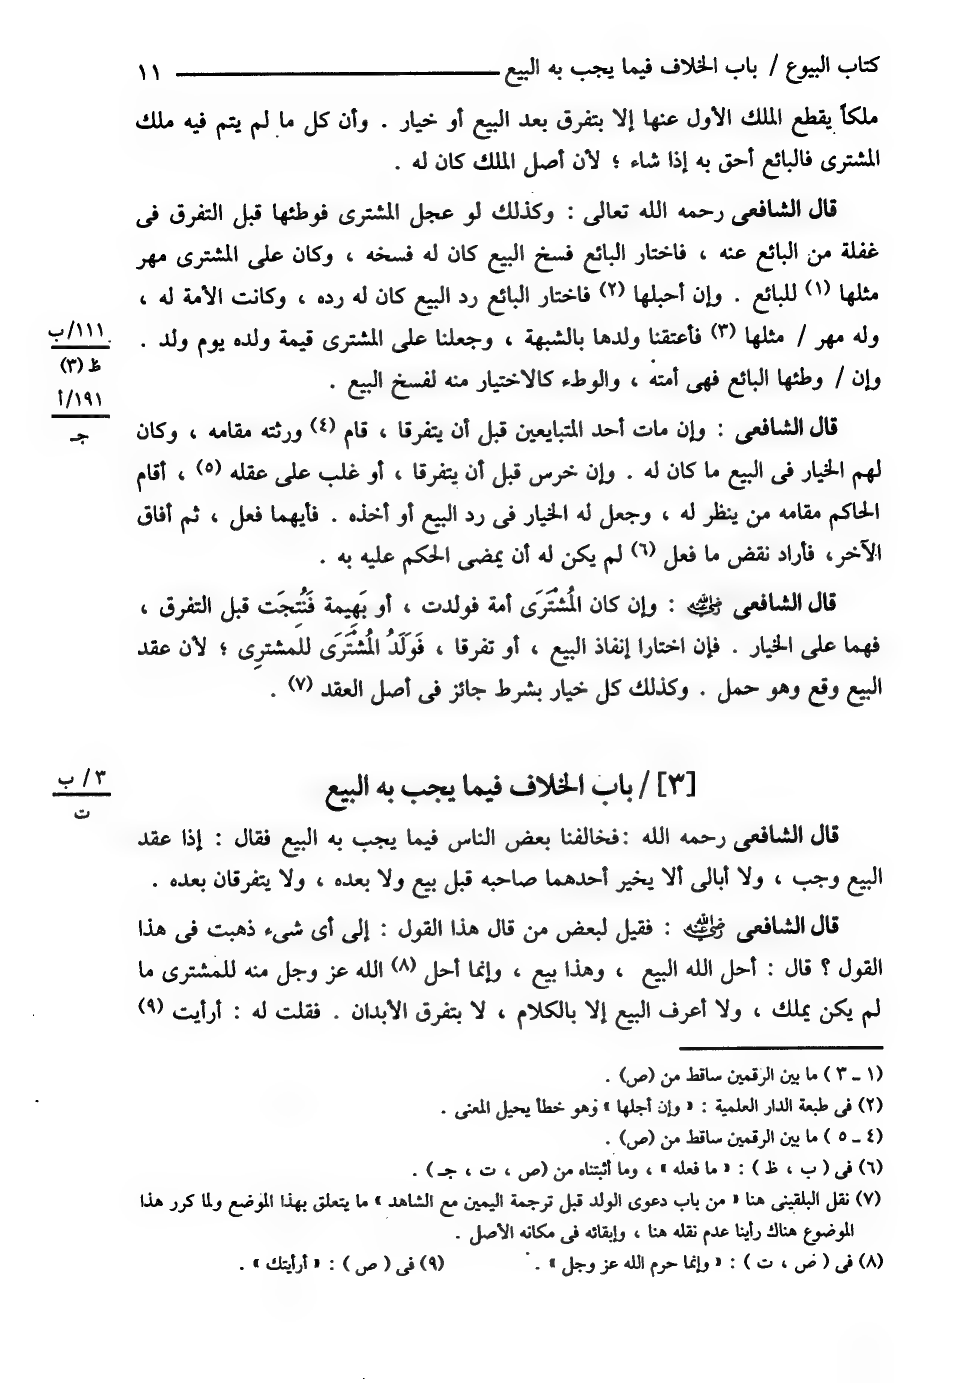 كتاب البيوع / باب الخلاف فيما يجب به البيع ــــــــ ١١
ملكاً يقطع الملك الأول عنها إلا بتفرق بعد البيع أو خيار . وأن كل ما لم يتم فيه ملك
المشترى فالبائع أحق به إذا شاء ؛ لأن أصل الملك كان له .
قال الشافعى رحمه الله تعالى : وكذلك لو عجل المشترى فوطئها قبل التفرق فى
غفلة من البائع عنه ، فاختار البائع فسخ البيع كان له فسخه ، وكان على المشترى مهر
مثلها (١) للبائع . وإن أحبلها (٢) فاختار البائع رد البيع كان له رده ، وكانت الأمة له ،
وله مهر / مثلها (٣) فأعتقنا ولدها بالشبهة ، وجعلنا على المشترى قيمة ولده يوم ولد .
١١١/ب
ظ (٣)
وإن / وطئها البائع فهى أمته ، والوطء كالاختيار منه لفسخ البيع .
١٩١/أ
جـ
قال الشافعى : وإن مات أحد المتبايعين قبل أن يتفرقا ، قام (٤) ورثته مقامه ، وكان
لهم الخيار فى البيع ما كان له . وإن خرس قبل أن يتفرقا ، أو غلب على عقله (٥) ، أقام
الحاكم مقامه من ينظر له ، وجعل له الخيار فى رد البيع أو أخذه . فأيهما فعل ، ثم أفاق
الآخر، فأراد نقض ما فعل (٦) لم يكن له أن يمضى الحكم عليه به .
قال الشافعى رضي الله عنه : وإن كان المُشْتَرَى أمة فولدت ، أو بَهِيمة فَنُتِجَت قبل التفرق ،
فهما على الخيار . فإن اختارا إنفاذ البيع ، أو تفرقا ، فَوَلَدُ المُشْتَرَى للمشترِى ؛ لأن عقد
البيع وقع وهو حمل . وكذلك كل خيار بشرط جائز فى أصل العقد (٧) .
[٣] / باب الخلاف فيما يجب به البيع
٣ / ب
ت
قال الشافعى رحمه الله :فخالفنا بعض الناس فيما يجب به البيع فقال : إذا عقد
البيع وجب ، ولا أبالى ألا يخير أحدهما صاحبه قبل بيع ولا بعده ، ولا يتفرقان بعده .
قال الشافعى رضي الله عنه : فقيل لبعض من قال هذا القول : إلى أى شىء ذهبت فى هذا
القول ؟ قال : أحل الله البيع ، وهذا بيع ، وإنما أحل (٨) الله عز وجل منه للمشترى ما
لم يكن يملك ، ولا أعرف البيع إلا بالكلام ، لا بتفرق الأبدان . فقلت له : أرأيت (٩)
(١ ــ ٣ ) ما بين الرقمين ساقط من (ص) .
(٢) فى طبعة الدار العلمية : « وإن أجلها » وهو خطأ يحيل المعنى .
(٤ ــ ٥ ) ما بين الرقمين ساقط من (ص) .
(٦) فى ( ب ، ظ ) : « ما فعله » ، وما أثبتناه من (ص ، ت ، جـ ) .
(٧) نقل البلقينى هنا « من باب دعوى الولد قبل ترجمة اليمين مع الشاهد » ما يتعلق بهذا الموضع ولما كرر هذا
الموضوع هناك رأينا عدم نقله هنا ، وإبقائه فى مكانه الأصل .
(٨) فى ( ص ، ت ) : « وإنما حرم الله عز وجل » .
(٩) فى ( ص ) : « أرأيتك » .